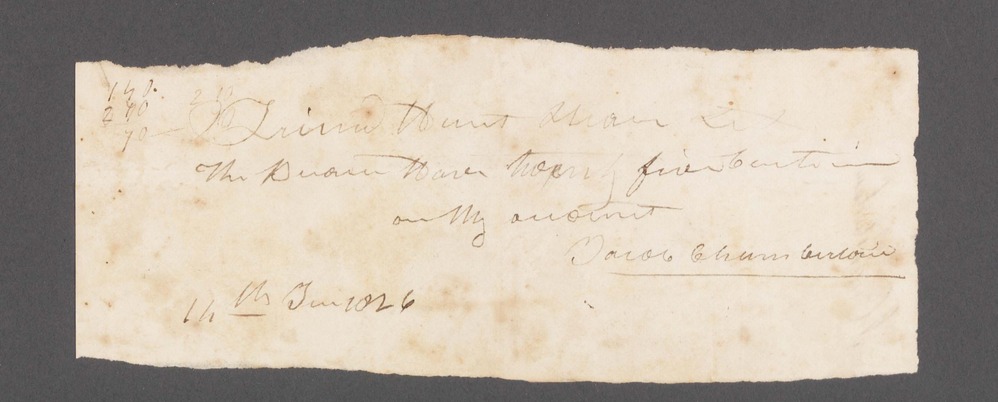 1.40.
2 40 210
70 Friend Hunt please Let
The Bearer Have twenty five Cents in
on My account
Jacob Chamberlain
14th Jun 1826